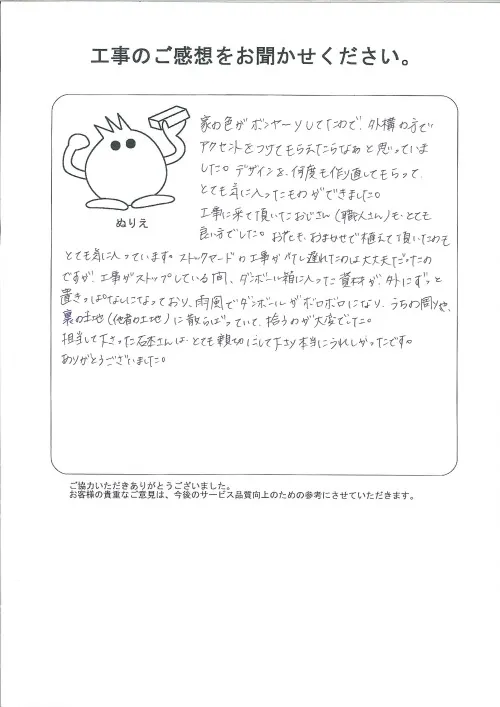 工事のご感想をお聞かせください。
家の色がボンヤーリしてたので、外構の方で
アクセントをつけてもらえたらなぁと思っていま
した。デザインを、何度も作り直してもらって、
とても気に入ったものができました。
工事に来て頂いたおじさん(職人さん)も、とても
良い方でした。お花も、おまかせで植えて頂いたのも
ぬりえ
とても気に入っています。ストックヤードの工事が少し遅れたのは大丈夫だったの
ですが、工事がストップしている間、ダンボール箱に入った資材が、外にずっと
置きっぱなしになっており、雨風でダンボールがボロボロになり、うちの周りや、
裏の土地(他者の土地)に散らばっていて、拾うのが大変でした。
担当して下さった石本さんは、とても親切にして下さり本当にうれしかったです。
ありがとうございました。
ご協力いただきありがとうございました。
お客様の貴重なご意見は、今後のサービス品質向上のための参考にさせていただきます。